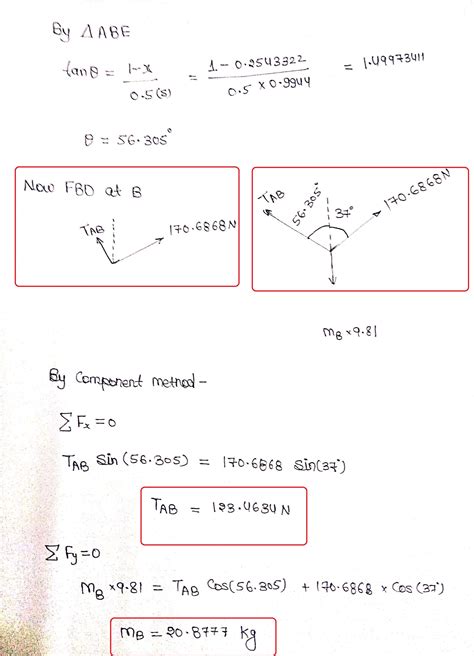 By △ABE
tanθ = 1-x / 0.5(s) = 1 - 0.2543322 / 0.5 × 0.9944 = 1.49973411
θ = 56.305°
Now FBD at B
TAB
170.6868N
TAB
56.305°
37°
170.6868N
mB × 9.81
By Component method-
∑Fx = 0
TAB Sin(56.305) = 170.6868 Sin(37°)
TAB = 123.4634 N
∑Fy = 0
mB × 9.81 = TAB Cos(56.305) + 170.6868 × Cos(37°)
mB = 20.8777 kg